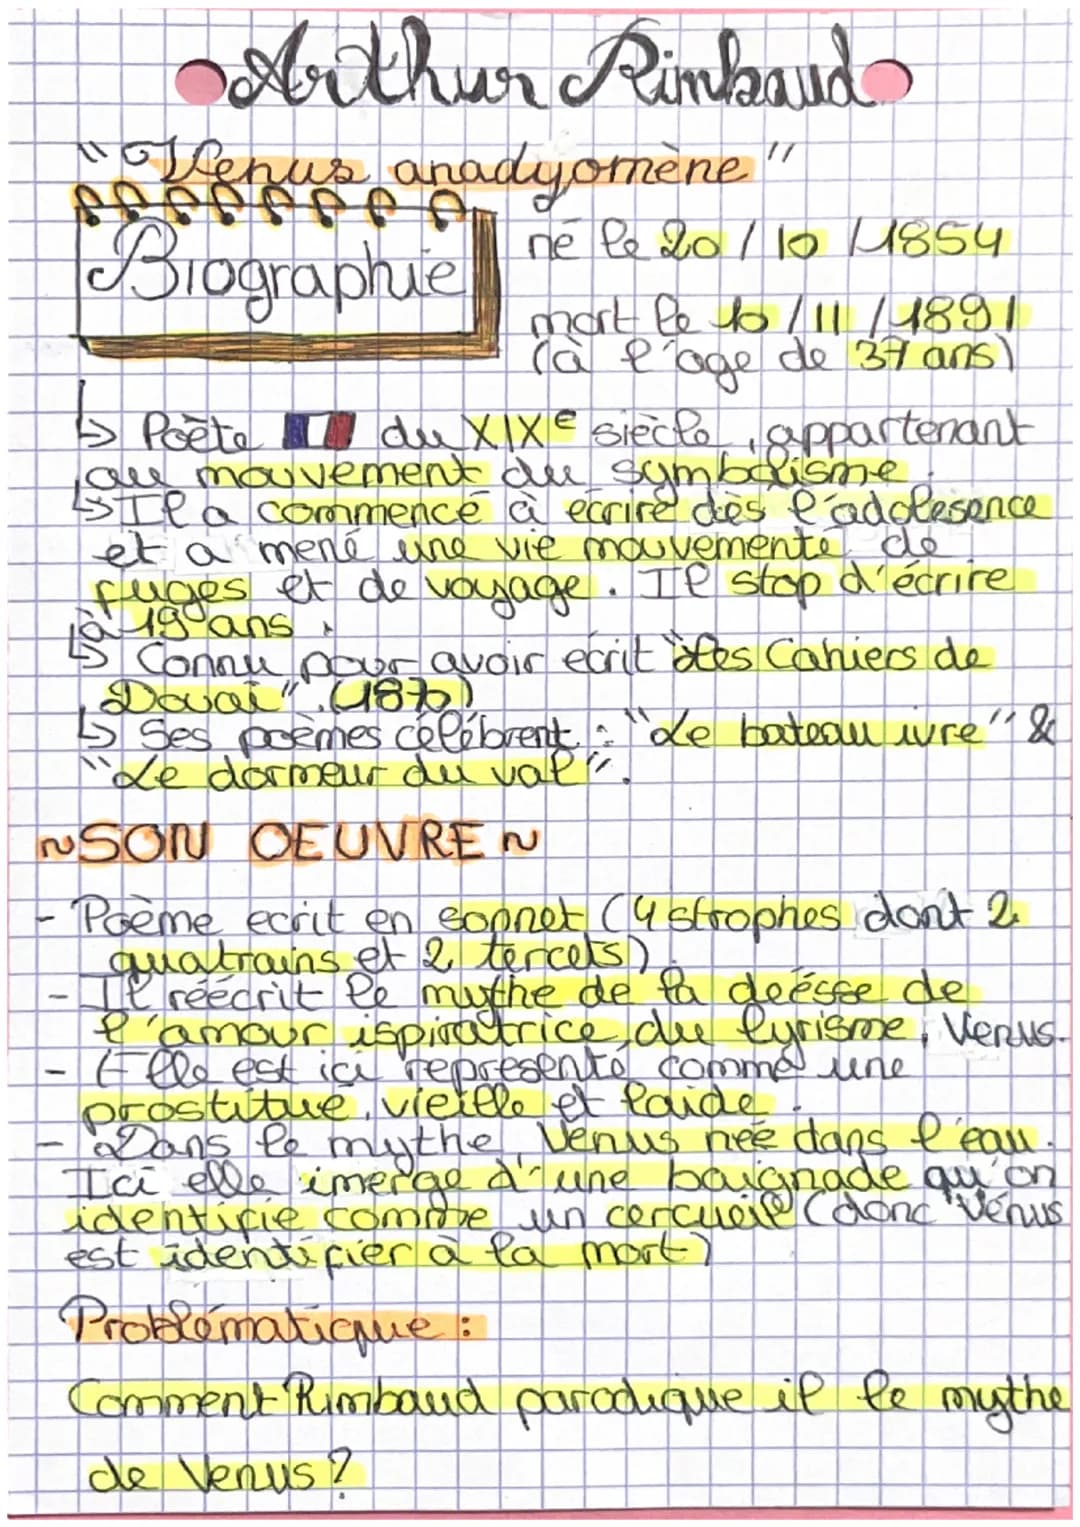 Arthur Rimbaud
"Venus anadyomène"
Biographie
né le 20/10/1854
mort le 10/11/1891
(à l'age de 37 ans)
↳ Poète du XIXe siècle, appartenant
au mouvement du symbolisme.
↳ Il a commencé à écrire dès l'adolesence
et a mené une vie mouvementé de
fuges et de voyage. Il stop d'écrire
à 19 ans.
↳ Connu pour avoir ecrit "Les Cahiers de
Douai". (1870)
↳ Ses poèmes célébrent : "Le bateau ivre" &
"Le dormeur du val".
~SON OEUVRE~
- Poème ecrit en sonnet (4 strophes dont 2
quatrains et 2 tercets)
- Il réécrit le mythe de la déésse de
l'amour ispiratrice du lyrisme, Venus.
- Elle est ici représenté comme une
prostitue, vieille et laide.
- Dans le mythe, Venus née dans l'eau.
Ici elle imerge d'une baignade qu'on
identifie comme un cercueil (donc Vénus
est identifier à la mort)
Problématique :
Comment Rimbaud parodique il le mythe
de Venus ?